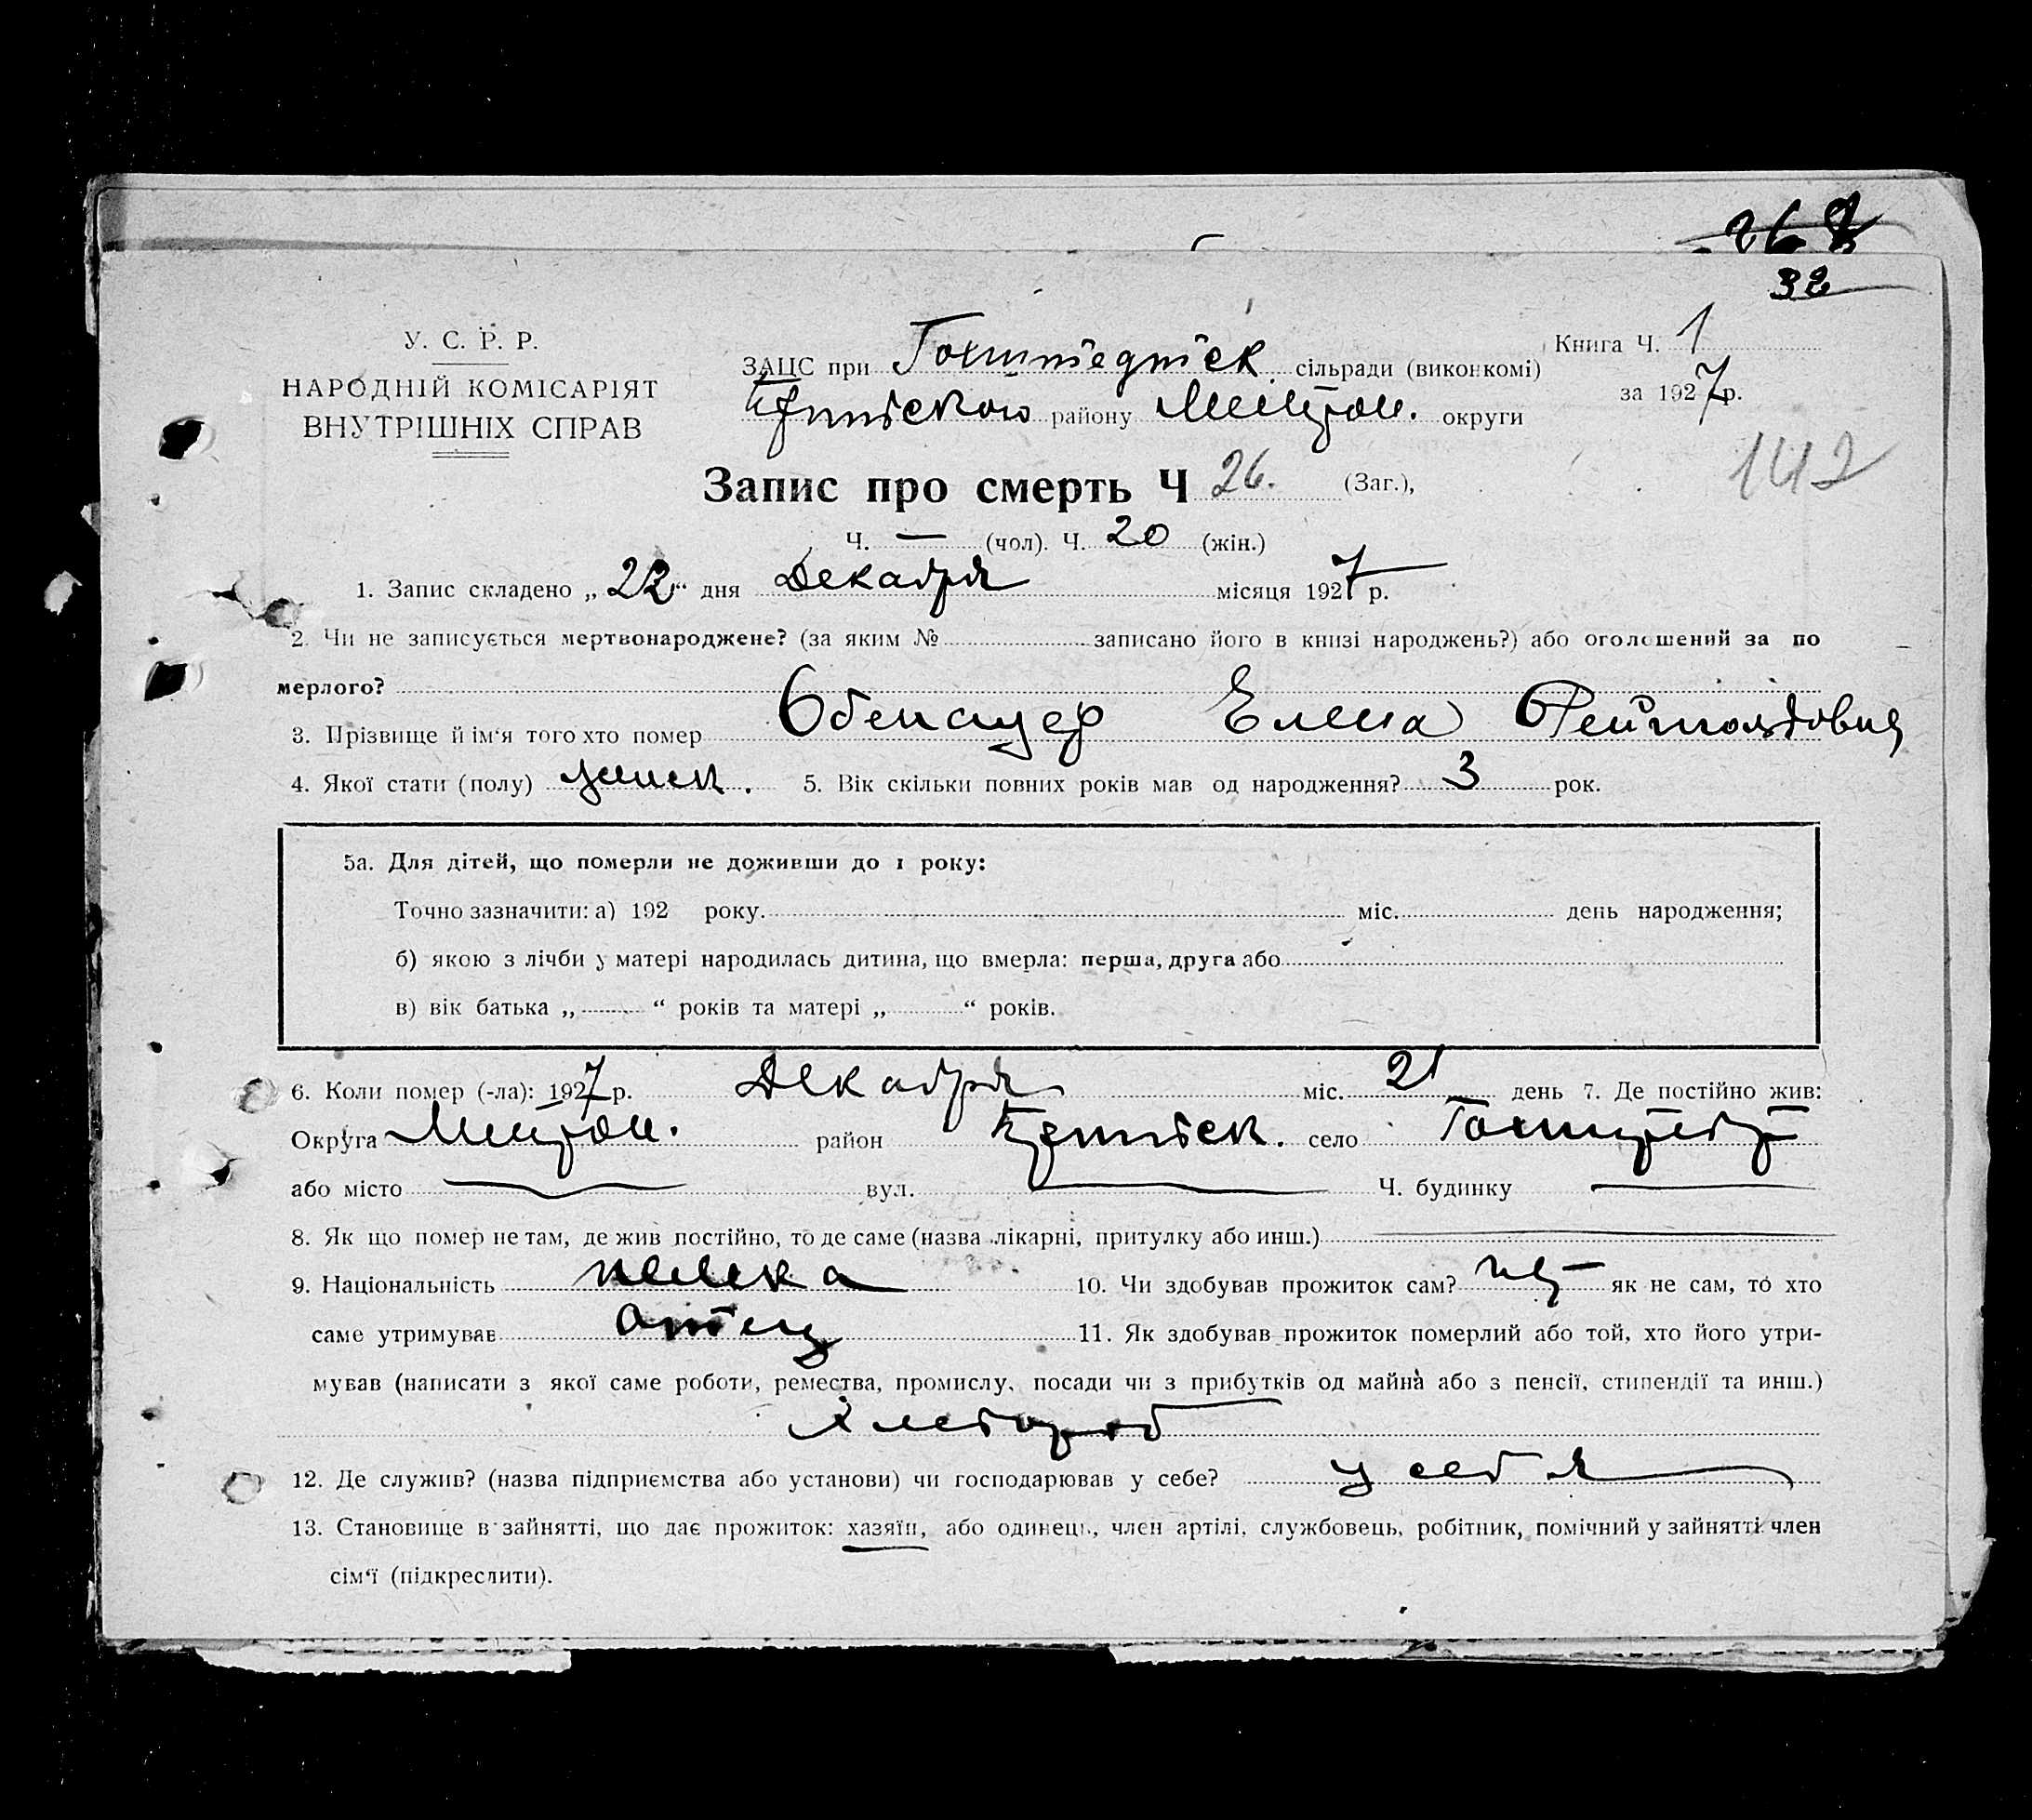 268
32
У. С. Р. Р.
НАРОДНІЙ КОМІСАРІЯТ
ВНУТРІШНІХ СПРАВ
ЗАЦС при Гохштедтск. сільради (виконкомі)
району Мелітоп. округи
Книга Ч. 1
за 1927 р.
142
Запис про смерть Ч 26. (Заг.),
Ч. — (чол). Ч. 20 (жін.)
1. Запис складено „22“ дня Декабря місяця 1927 р.
2. Чи не записується мертвонароджене? (за яким № записано його в книзі народжень?) або оголошений за по
мерлого?
3. Прізвище й ім'я того хто помер Обенауер Елена
4. Якої стати (полу) женск. 5. Вік скільки повних років мав од народження? 3 рок.
5а. Для дітей, що померли не доживши до 1 року:
Точно зазначити: а) 192 року. міс. день народження;
б) якою з лічби у матері народилась дитина, що вмерла: перша, друга або
в) вік батька „ “ років та матері „ “ років.
6. Коли помер (-ла): 1927 р. Декабря міс. 21 день 7. Де постійно жив:
Округа Мелітоп. район село Гохштедт
або місто — вул. — Ч. будинку —
8. Як що помер не там, де жив постійно, то де саме (назва лікарні, притулку або инш.) —
9. Національність немка 10. Чи здобував прожиток сам? нет як не сам, то хто
саме утримував отец 11. Як здобував прожиток померлий або той, хто його утри-
мував (написати з якої саме роботи, ремества, промислу, посади чи з прибутків од майна або з пенсії, стипендії та инш.)
хлебороб
12. Де служив? (назва підприємства або установи) чи господарював у себе? у себя
13. Становище в зайнятті, що дає прожиток: хазяїн, або одинець, член артілі, службовець, робітник, помічний у зайнятті член
сім'ї (підкреслити).